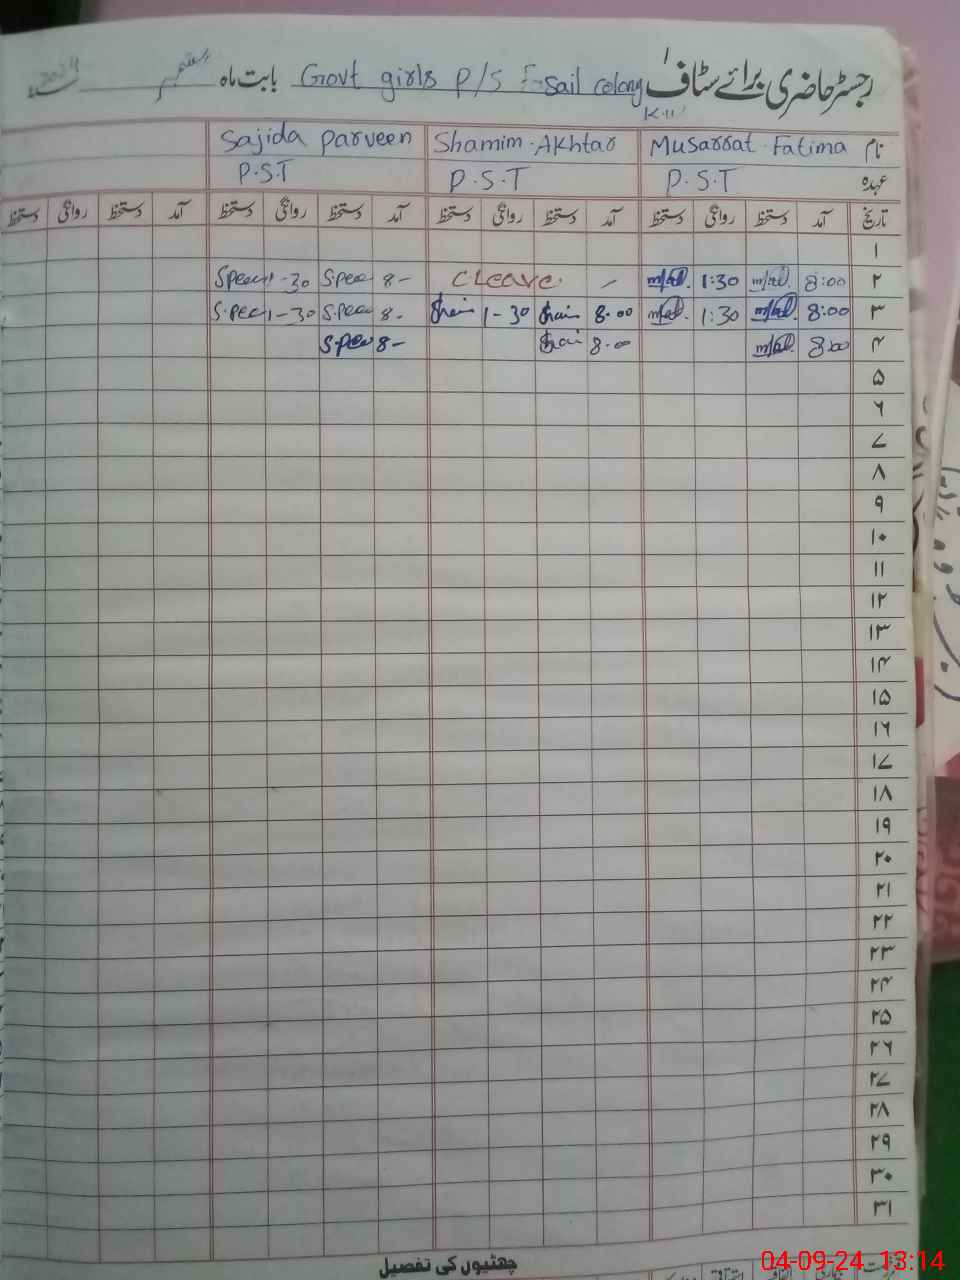 رجسٹر حاضری برائے سٹاف Govt girls P/S Fasail colony بابت ماہ ستمبر 2024
نام Musarrat Fatima Shamim Akhtar Sajida Parveen
عہدہ P.S.T P.S.T P.S.T
تاریخ آمد دستخط روانگی دستخط آمد دستخط روانگی دستخط آمد دستخط روانگی دستخط آمد دستخط روانگی دستخط
۱
۲ 8:00 1:30 - C Leave 8- 1-30
۳ 8:00 1:30 8.00 1-30 8- 1-30
۴ 8:00 8.00 8-
۵
۶
۷
۸
۹
۱۰
۱۱
۱۲
۱۳
۱۴
۱۵
۱۶
۱۷
۱۸
۱۹
۲۰
۲۱
۲۲
۲۳
۲۴
۲۵
۲۶
۲۷
۲۸
۲۹
۳۰
۳۱
چھٹیوں کی تفصیل
04-09-24 13:14